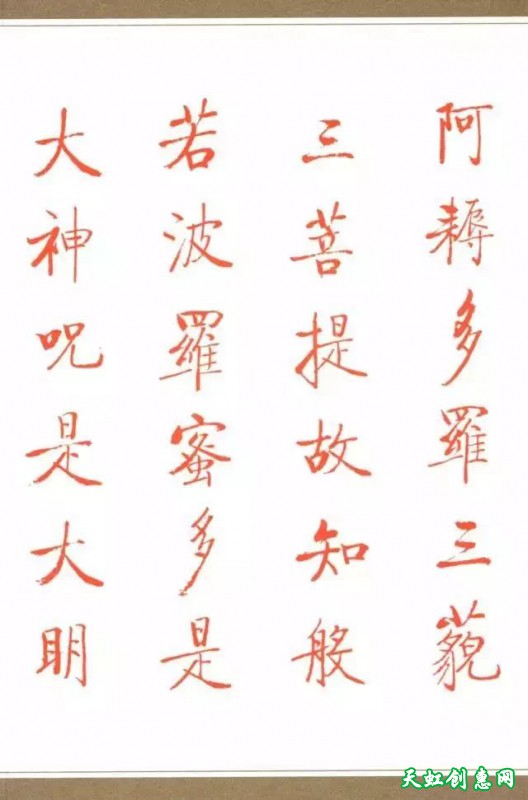 阿耨多羅三藐
三菩提故知般
若波羅蜜多是
大神呪是大明
天虹创惠网